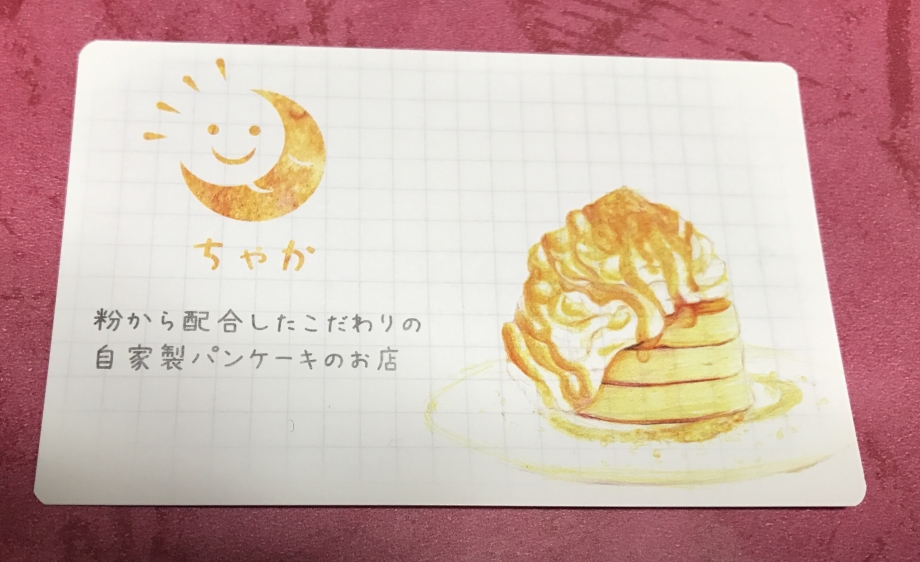 ちゃか
粉から配合したこだわりの
自家製パンケーキのお店